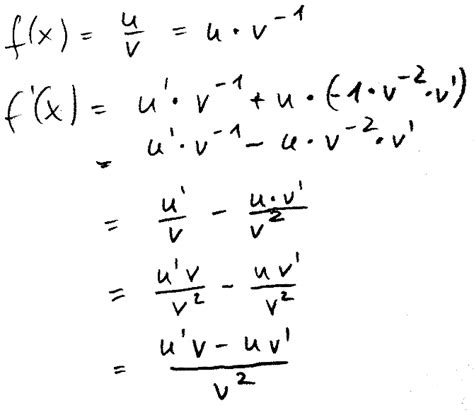 f(x) = u/v = u · v⁻¹
f'(x) = u' · v⁻¹ + u · (-1 · v⁻² · v')
= u' · v⁻¹ - u · v⁻² · v'
= u'/v - u·v'/v²
= u'v/v² - uv'/v²
= (u'v - uv')/v²